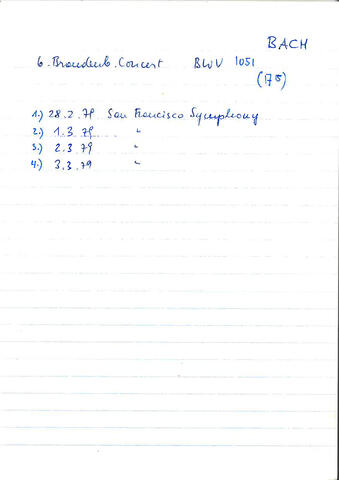 BACH
6. Brandenb. Concert BWV 1051
1.) 28.2.79 San Francisco Symphony
2.) 1.3.79 "
3.) 2.3.79 "
4.) 3.3.79 "